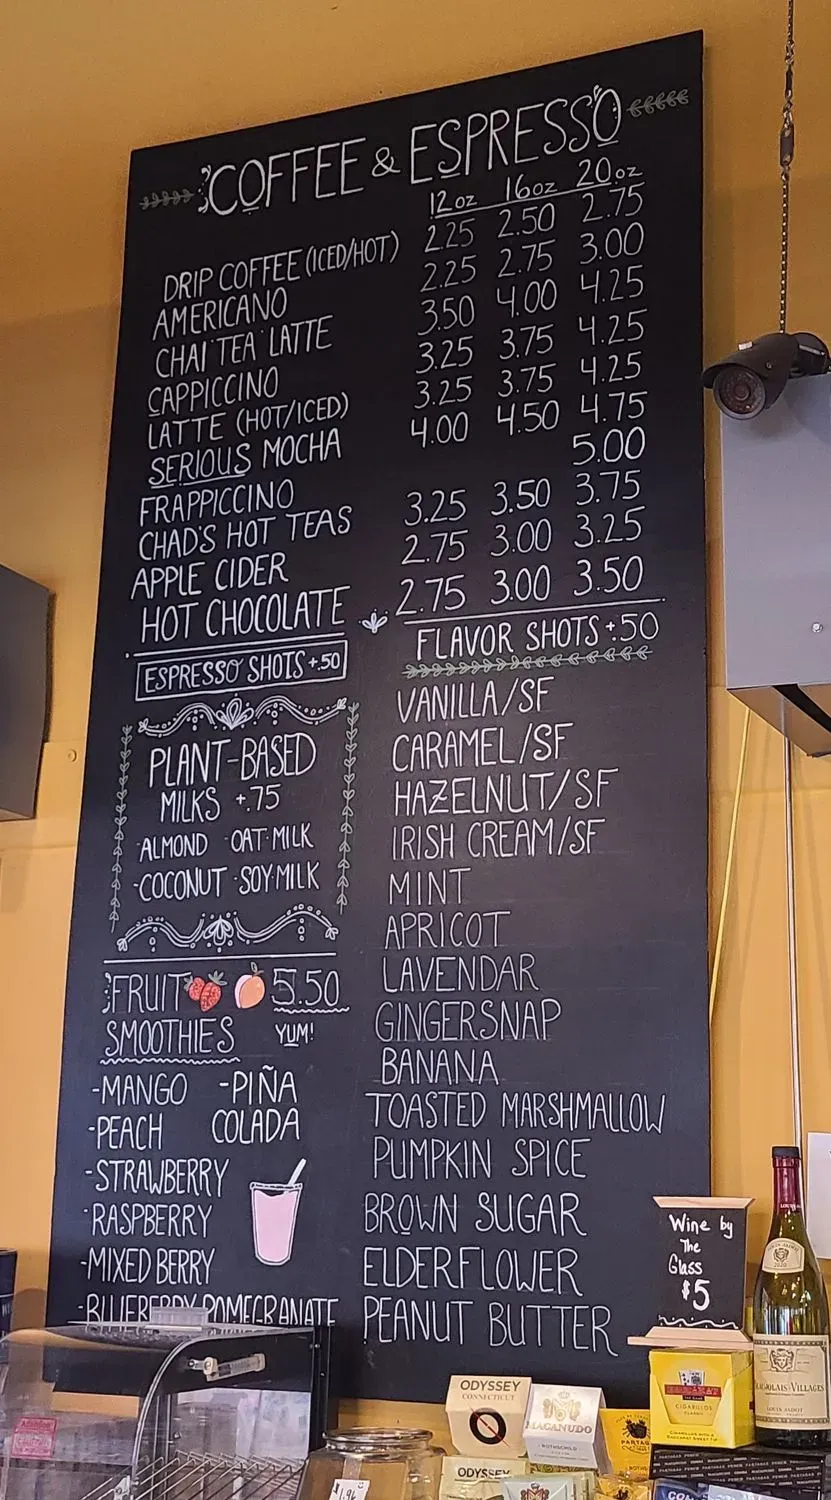 COFFEE & ESPRESSO
12oz 16oz 20oz
DRIP COFFEE (ICED/HOT) 2.25 2.50 2.75
AMERICANO 2.25 2.75 3.00
CHAI TEA LATTE 3.50 4.00 4.25
CAPPICCINO 3.25 3.75 4.25
LATTE (HOT/ICED) 3.25 3.75 4.25
SERIOUS MOCHA 4.00 4.50 4.75
FRAPPICCINO 5.00
CHAD'S HOT TEAS 3.25 3.50 3.75
APPLE CIDER 2.75 3.00 3.25
HOT CHOCOLATE 2.75 3.00 3.50
ESPRESSO SHOTS +.50
PLANT-BASED
MILKS +.75
-ALMOND -OAT MILK
-COCONUT -SOY MILK
FRUIT 5.50
SMOOTHIES YUM!
-MANGO -PIÑA
-PEACH COLADA
-STRAWBERRY
-RASPBERRY
-MIXED BERRY
-BLUEBERRY POMEGRANATE
FLAVOR SHOTS +.50
VANILLA/SF
CARAMEL/SF
HAZELNUT/SF
IRISH CREAM/SF
MINT
APRICOT
LAVENDAR
GINGERSNAP
BANANA
TOASTED MARSHMALLOW
PUMPKIN SPICE
BROWN SUGAR
ELDERFLOWER
PEANUT BUTTER
Wine by
The
Glass
$5
LOUIS JADOT
BEAUJOLAIS-VILLAGES
LOUIS JADOT
CIGARILLOS
ODYSSEY
CONNECTICUT
MACANUDO
ROTHSCHILD
PARTAGAS
ODYSSEY
1.96